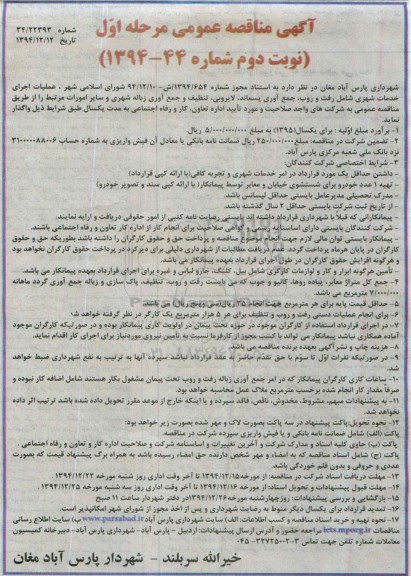 آگهی مناقصه عمومی مرحله اوّل
(نوبت دوم شماره ۴۴-۱۳۹۴)
شماره ۳۴/۲۲۳۹۳
تاریخ ۱۳۹۴/۱۲/۱۲
شهرداری پارس آباد مغان در نظر دارد به استناد مجوز شماره ۱۳۹۴/۶۵۴/ش- ۹۴/۱۲/۱۰ شورای اسلامی شهر ، عملیات اجرای
خدمات شهری شامل رفت و روب، جمع آوری پسماند، لایروبی، تنظیف و جمع آوری زباله شهری و سایر امورات مرتبط را از طریق
مناقصه عمومی به شرکت های واجد صلاحیت و مورد تأیید اداره تعاون، کار و رفاه اجتماعی به مدت یکسال طبق شرایط ذیل واگذار
نماید.
۱- برآورد مبلغ اوّلیه : برای یکسال(۱۳۹۵) به مبلغ ۵/۰۰۰/۰۰۰/۰۰۰ ریال
۲- تضمین شرکت در مناقصه: مبلغ ۲۵۰/۰۰۰/۰۰۰ ریال ضمانت نامه بانکی یا معادل آن فیش واریزی به شماره حساب ۳۱۰۰۰۰۰۸۸۰۰۶
نزد بانک ملی شعبه مرکزی پارس آباد.
۳- شرایط اختصاصی شرکت کنندگان:
- داشتن حداقل یک مورد قرارداد در امر خدمات شهری و تجربه کافی(با ارائه کپی قرارداد)
- تهیه ۱ عدد خودرو برای شستشوی خیابان و معابر توسط پیمانکار( با ارائه کپی سند و تصویر خودرو)
- مدرک تحصیلی مدیرعامل بایستی حداقل لیسانس باشد.
- از تاریخ ثبت شرکت بایستی حداقل ۲ سال گذشته باشد.
- پیمانکارانی که قبلاً با شهرداری قرارداد داشته اند بایستی رضایت نامه کتبی از امور حقوقی دریافت و ارایه نمایند.
- شرکت کنندگان بایستی دارای اساسنامه رسمی و گواهی صلاحیت برای انجام کار از اداره کار تعاون و رفاه اجتماعی باشند.
- پیمانکار بایستی توان مالی لازم جهت انجام موضوع مناقصه و پرداخت حق و حقوق کارگران را داشته باشد بطوریکه حق و حقوق
کارگران در پایان هرماه پرداخت گردد. عدم دریافت مطالبات از شهرداری دلیلی برای دیرکرد در پرداخت حقوق کارگران نخواهد بود
و هرگونه افزایش حقوق کارگران در طول اجرای قرارداد بعهده پیمانکار می باشد.
- تأمین هرگونه ابزار و کار و لوازمات کارگری شامل بیل، کلنگ، جارو لباس و غیره برای اجرای قرارداد بعهده پیمانکار می باشد.
۴- جمع کل متراژ معابر، پیاده روها، کانیو و جوب که می بایست رفت و روب، تنظیف، پاک سازی و زباله جمع آوری گردد ماهانه
۷/۰۰۰/۰۰۰ مترمربع می باشد.
۵- حداقل قیمت پایه برای هر مترمربع جهت انجام ۳۵ ریال(سی و پنج ریال) می باشد.
۶- برای انجام عملیات دستی رفت و روب و تنظیف برای هر ۵ هزار مترمربع یک کارگر در نظر گرفته خواهد شد؛
۷- در اجرای قرارداد استفاده از کارگران موجود در حوزه تحت پیمان در اولویت کاری پیمانکار بوده و در صورتیکه کارگران موجود
آماده همکاری نباشد پیمانکار می تواند با کسب مجوز از کارفرما نسبت به تأمین نیروی موردنیاز برای اجرای کار اقدام نماید.
۸- هزینه چاپ و نشر آگهی بعهده برنده مناقصه می باشد.
۹- در صورتیکه نفرات اوّل تا سوّم با حق تقدم حاضر به عقد قرارداد نباشد سپرده آنها به ترتیب به نفع شهرداری ضبط خواهد
شد.
۱۰- ساعات کاری کارگران پیمانکار که در امر جمع آوری زباله رفت و روب تحت پیمان مشغول بکار هستند شامل اضافه کار نبوده و
صرفاً مقدار کار انجام شده برحسب مترمربع ملاک عمل محاسبه خواهد بود.
۱۱- به پیشنهادات مبهم، مشروط، مخدوش، ناقص، فاقد سپرده و یا اینکه خارج از موعد مقرر تحویل داده شده باشد ترتیب اثر داده
نخواهد شد.
۱۲- نحوه تحویل:پاکت پیشنهاد در سه پاکت بصورت لاک و مهر شده بصورت زیر خواهد بود:
پاکت (الف) شامل ضمانت نامه بانکی و یا فیش واریزی سپرده شرکت در مناقصه.
پاکت (ب) حاوی کلیه اسناد و مدارک شرکت و آخرین تغییرات و اساسنامه شرکت و صلاحیت اداره کار و تعاون و رفاه اجتماعی.
پاکت (ج) شامل اسناد مناقصه که به امضاء و مهر شخص دارنده حق امضاء رسیده باشد به همراه برگ پیشنهاد قیمت که بصورت
عددی و حروفی و بدون قلم خوردگی باشد.
۱۳- مهلت دریافت اسناد شرکت در مناقصه: از مورخه ۱۳۹۴/۱۲/۱۵ تا آخر وقت اداری روز شنبه مورخه ۱۳۹۴/۱۲/۲۲
۱۴- مهلت قبول پیشنهادات و تحویل اسناد: از مورخه ۱۳۹۴/۱۲/۱۶ تا آخر وقت اداری روز سه شنبه مورخه ۱۳۹۴/۱۲/۲۵
۱۵- بازگشایی و بررسی پیشنهادات: روزچهارشنبه مورخه ۱۳۹۴/۱۲/۲۶ در دفتر شهردار ساعت ۱۱ صبح
۱۶- تمدید قرارداد برای یکسال دیگر منوط به رضایت شهرداری و پس از اخذ مجوز از شورای شهر امکانپذیر است.
۱۷- نحوه تهیه و خرید اسناد مناقصه و کسب اطلاعات: الف) سایت شهرداری پارس آباد www.parsabad.ir ب) سایت اطلاع رسانی
مناقصات iets.mporg.ir مراجعه حضور و آدرس ارسال پیشنهادات: اردبیل - پارس آباد - شهرداری پارس آباد- دبیرخانه کمیسیون
معاملات شماره تلفن جهت تماس ۳-۳۲۷۲۵۰۰۲ - ۰۴۵
خیرالله سربلند - شهردار پارس آباد مغان